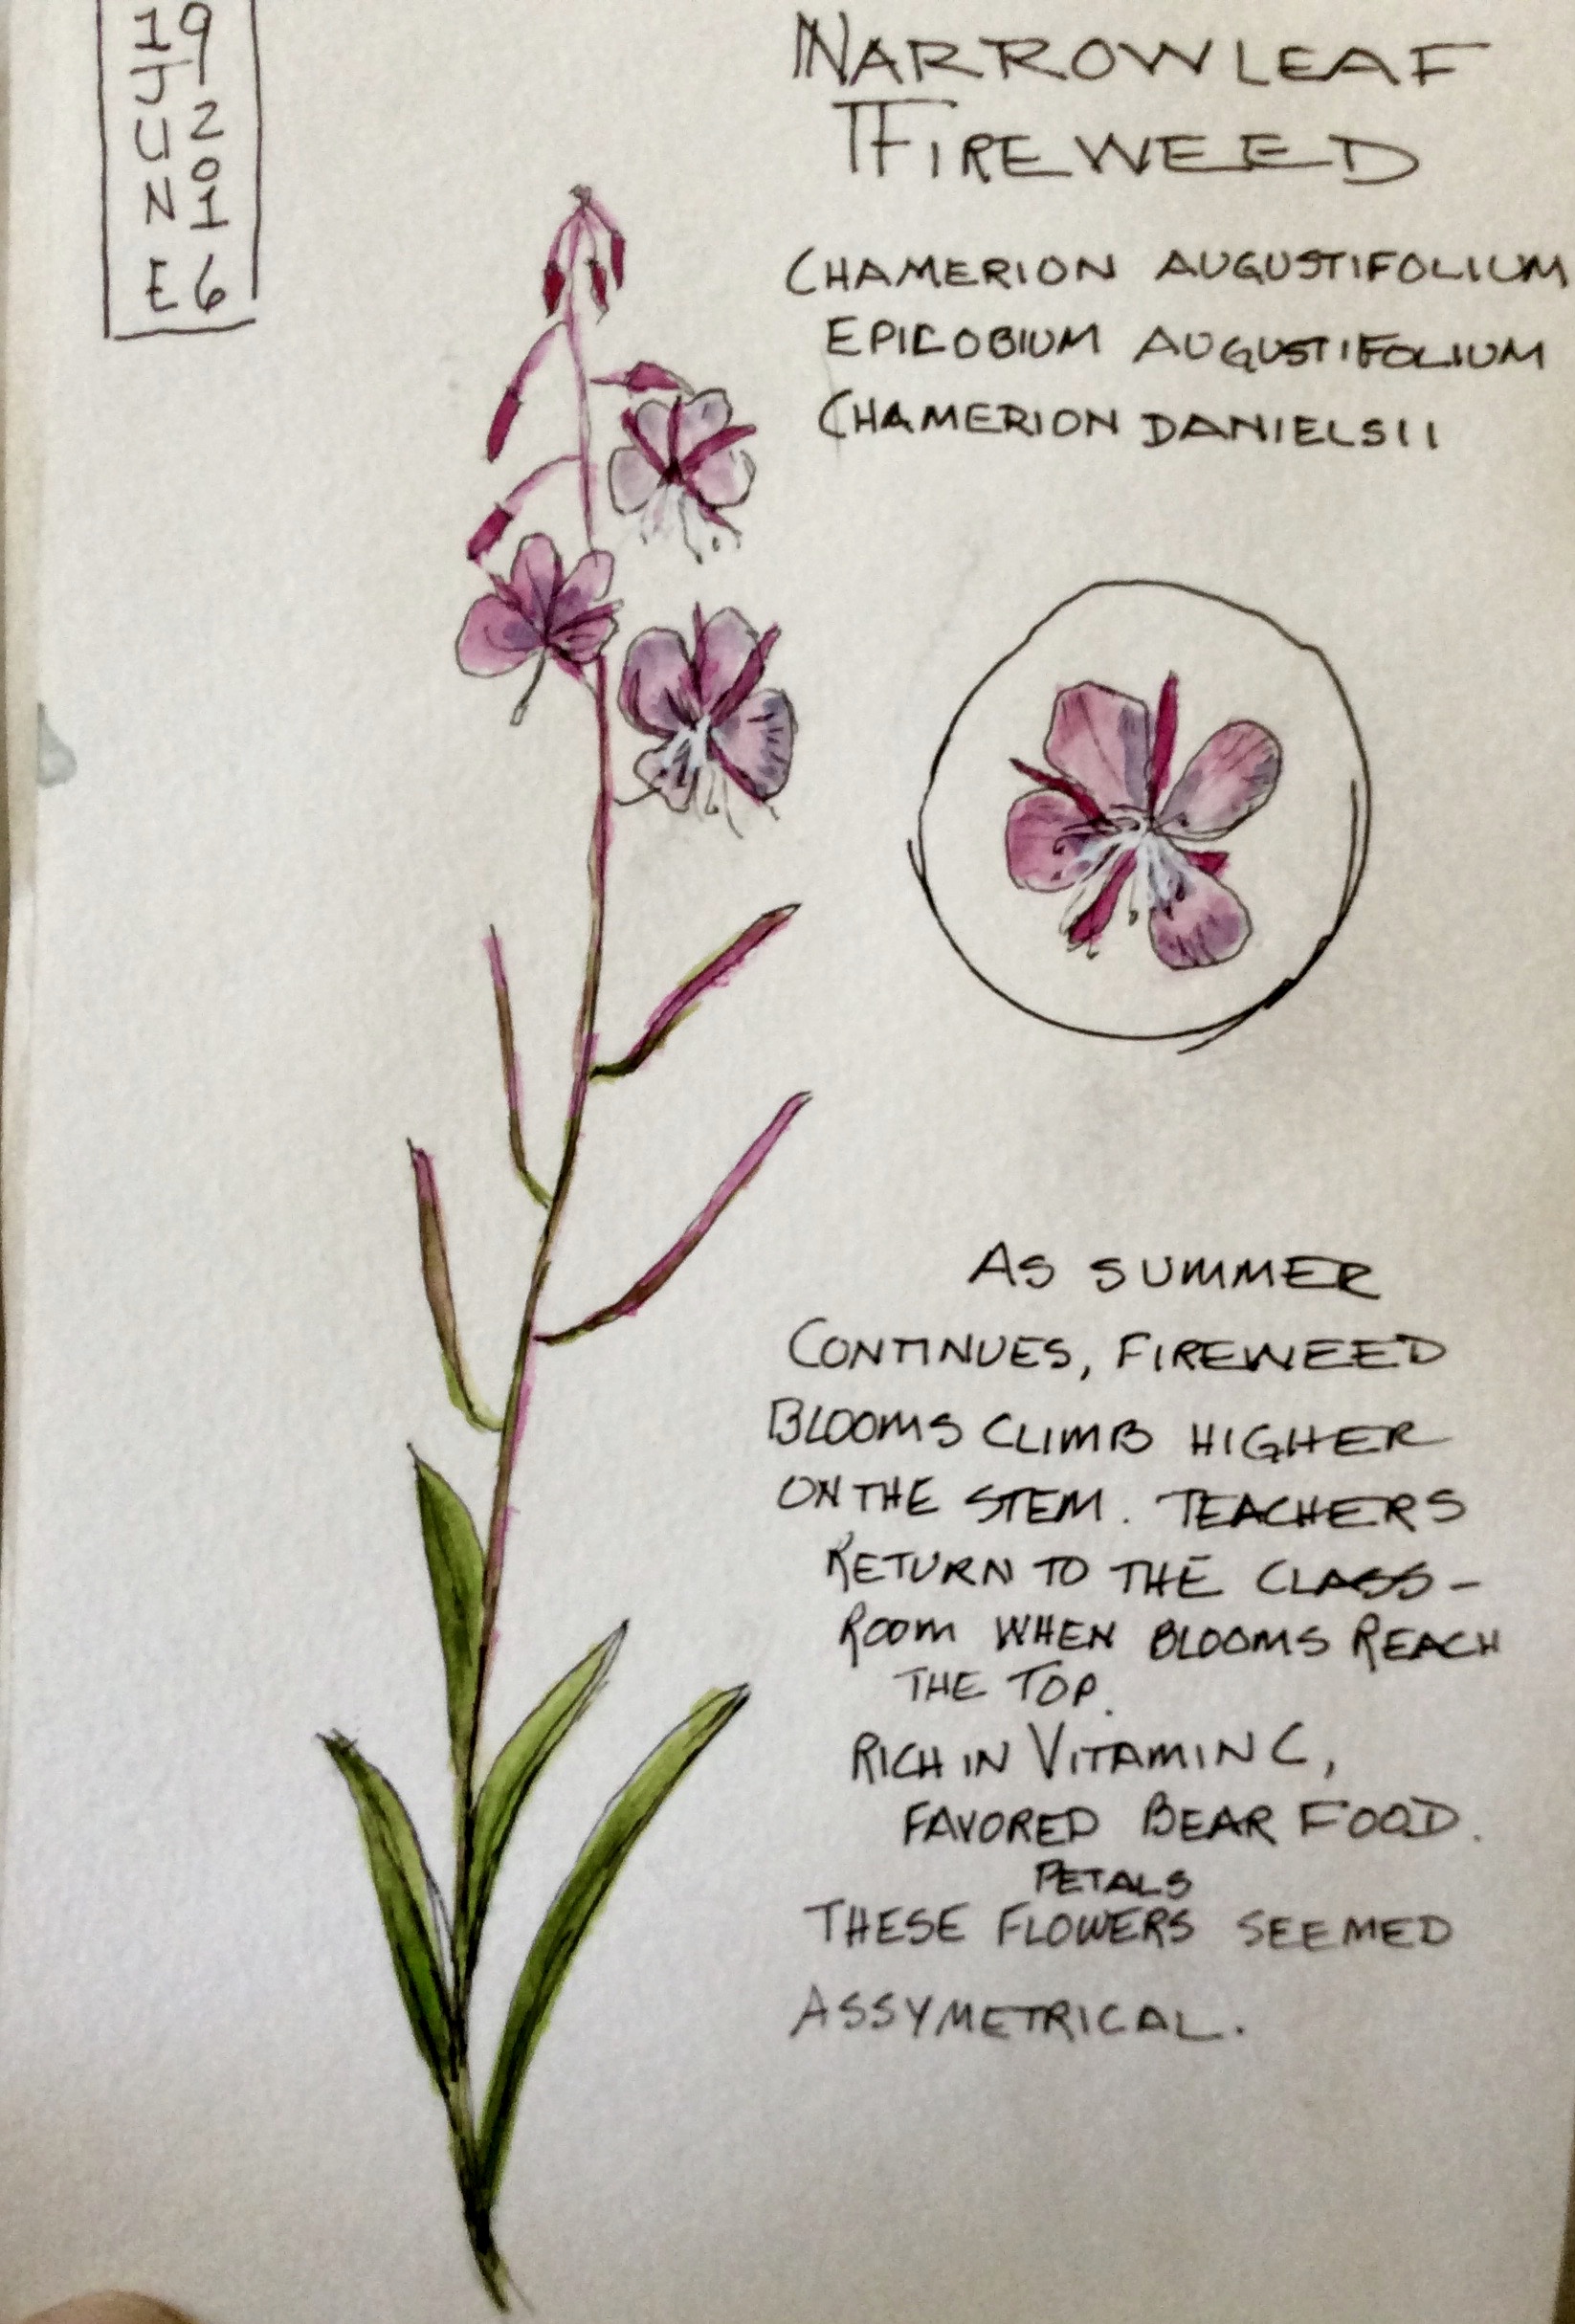 19
JUNE
2016
NARROWLEAF
FIREWEED
CHAMERION AUGUSTIFOLIUM
EPILOBIUM AUGUSTIFOLIUM
CHAMERION DANIELSII
AS SUMMER
CONTINUES, FIREWEED
BLOOMS CLIMB HIGHER
ON THE STEM. TEACHERS
RETURN TO THE CLASS-
ROOM WHEN BLOOMS REACH
THE TOP.
RICH IN VITAMIN C,
FAVORED BEAR FOOD.
PETALS
THESE FLOWERS SEEMED
ASSYMETRICAL.